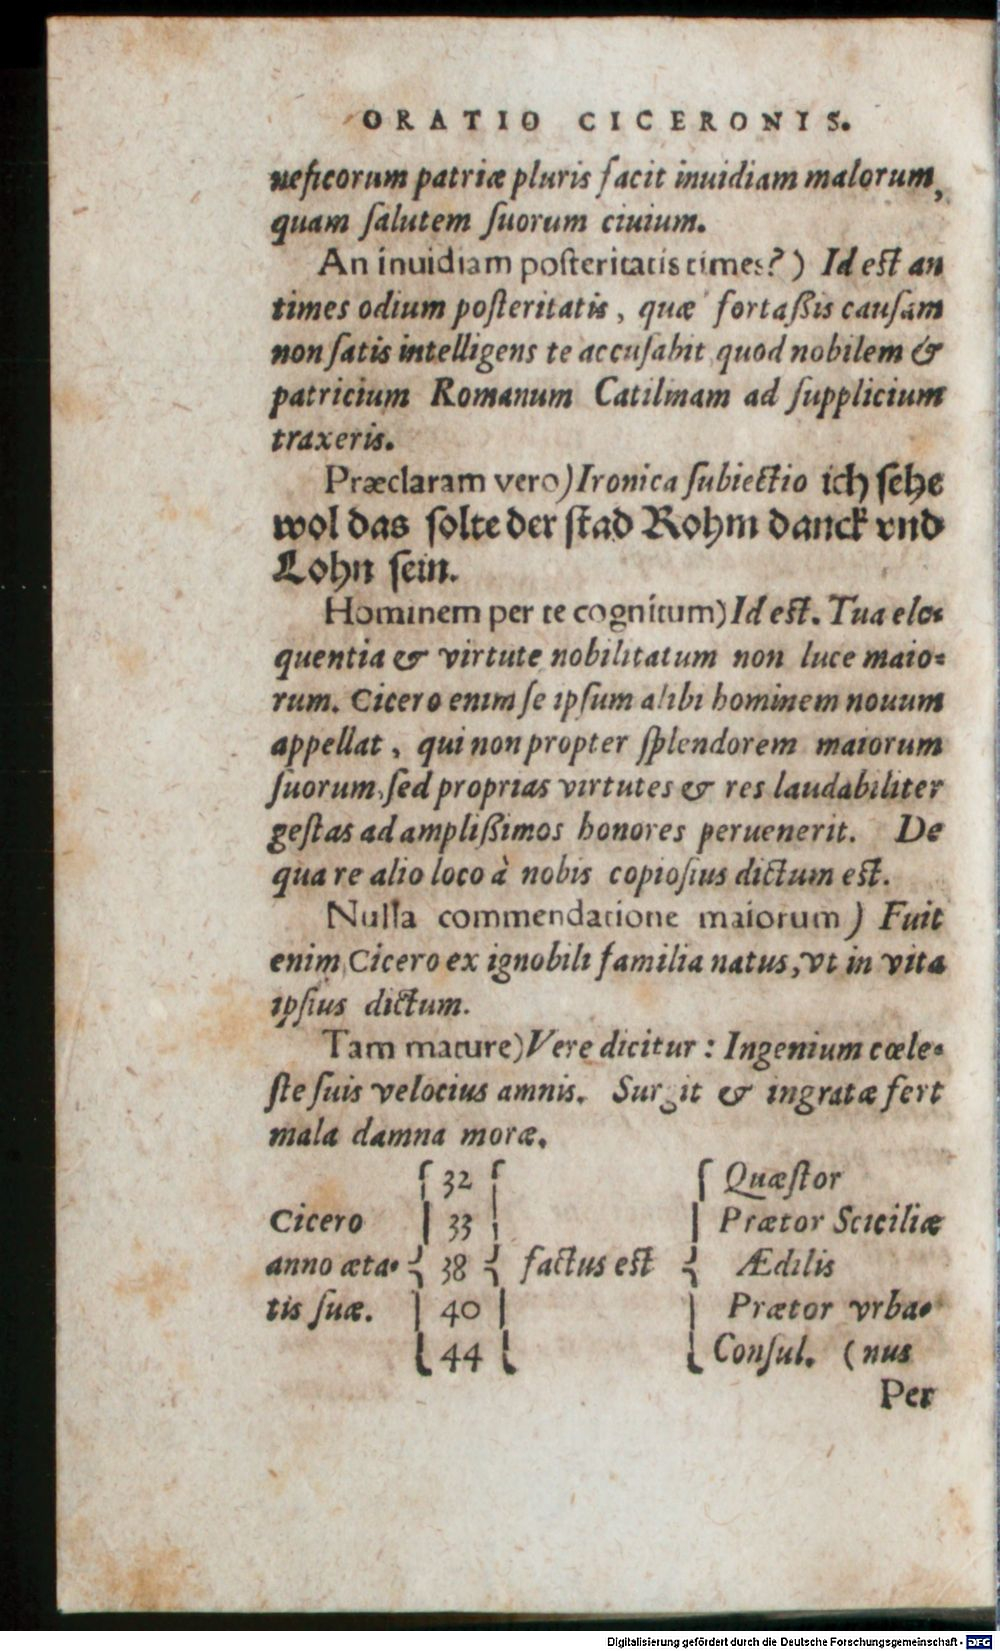 ORATIO CICERONIS.
neficorum patriæ pluris facit inuidiam malorum,
quam ſalutem ſuorum ciuium.
An inuidiam poſteritatis times?) Id est an
times odium poſteritatis, quæ fortaßis cauſam
non ſatis intelligens te accuſabit quod nobilem &
patricium Romanum Catilinam ad ſupplicium
traxeris.
Præclaram vero) Ironica ſubiectio ich ſehe
wol das ſolte der ſtad Rohm danck vnd
Lohn ſein.
Hominem per te cognitum) Id est. Tua elo-
quentia & virtute nobilitatum non luce maio-
rum. Cicero enim ſe ipſum alibi hominem nouum
appellat, qui non propter ſplendorem maiorum
ſuorum, ſed proprias virtutes & res laudabiliter
geſtas ad amplißimos honores peruenerit. De
qua re alio loco à nobis copioſius dictum est.
Nulla commendatione maiorum) Fuit
enim Cicero ex ignobili familia natus, vt in vita
ipſius dictum.
Tam mature) Vere dicitur: Ingenium cœle-
ſte ſuis velocius amnis. Surgit & ingratæ fert
mala damna moræ.
32 Quæſtor
Cicero 33 Prætor Sciciliæ
anno æta- 38 factus est Ædilis
tis ſuæ. 40 Prætor vrba-
44 Conſul. (nus
Per
Digitalisierung gefördert durch die Deutsche Forschungsgemeinschaft - DFG